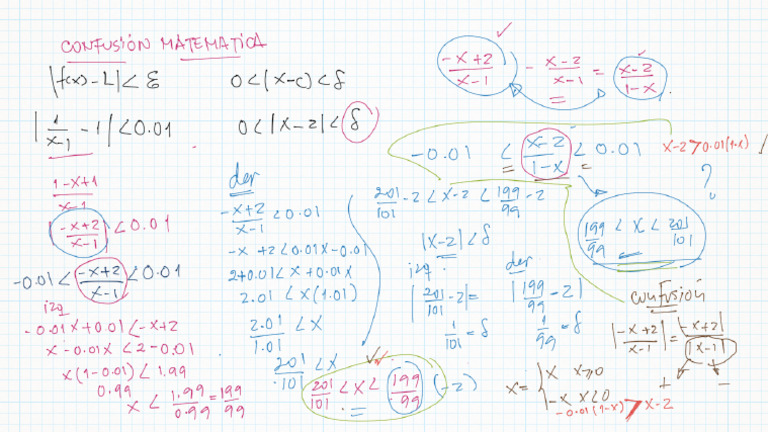 CONFUSIÓN MATEMATICA
|f(x)-L|<ε 0<|x-c|<δ
|1/(x-1) - 1|<0.01 0<|x-2|<δ
(1-x+1)/(x-1)
|(-x+2)/(x-1)|<0.01
-0.01<(-x+2)/(x-1)<0.01
izq
-0.01x+0.01<-x+2
x-0.01x<2-0.01
x(1-0.01)<1.99
0.99
x<1.99/0.99=199/99
der
(-x+2)/(x-1)<0.01
-x+2<0.01x-0.01
2+0.01<x+0.01x
2.01<x(1.01)
2.01/1.01<x
201/101<x
201/101<x<199/99 (-2)
(-x+2)/(x-1) - (x-2)/(x-1) = (x-2)/(1-x)
-0.01<(x-2)/(1-x)<0.01 x-2>0.01(1-x)
?
199/99<x<201/101
201/101-2<x-2<199/99-2
|x-2|<δ
izq der
|201/101-2|= |199/99-2|
1/101=δ 1/99=δ
confusión
|(-x+2)/(x-1)|=|-x+2|/|x-1|
+ -
x={x x≥0
-x x<0
-0.01(1-x)>x-2